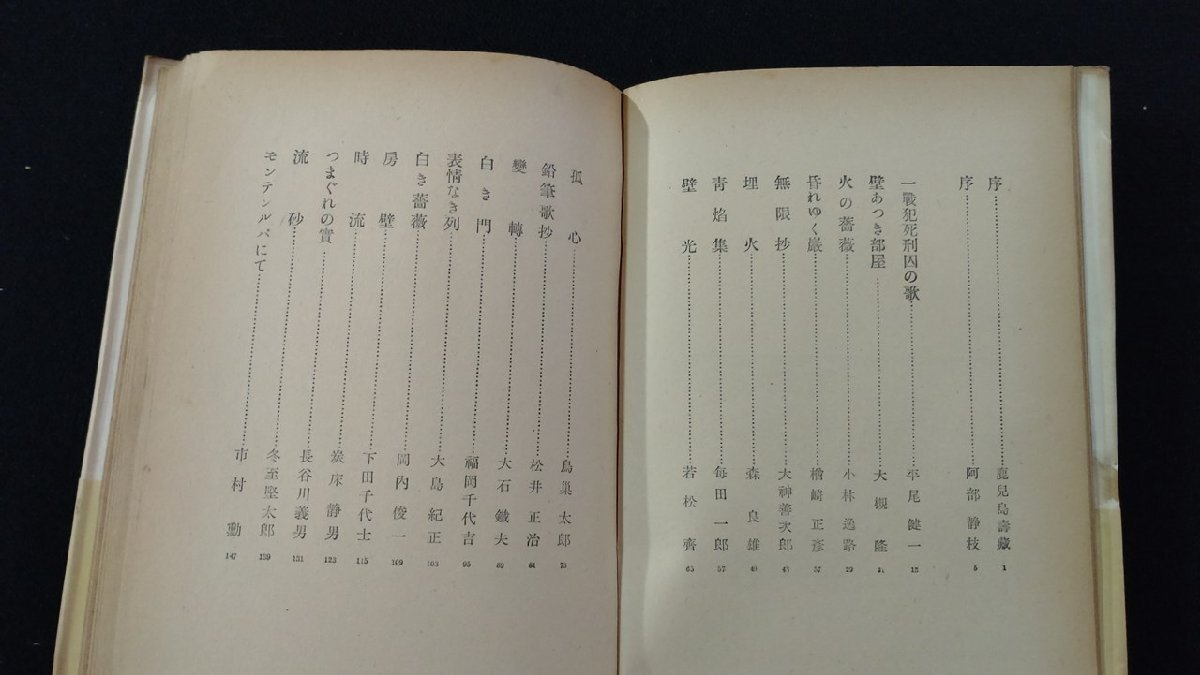 序……鹿兒島壽藏 1
序……阿部靜枝 5
一戰犯死刑囚の歌……平尾健一 13
壁あつき部屋……大槻隆 21
火の薔薇……小林逸路 29
昏れゆく巖……檜崎正彥 37
無限抄……大神善次郎 43
埋火……森良雄 49
靑焰集……每田一郎 57
壁光……若松齊 65
孤心……鳥巢太郎 75
鉛筆歌抄……松井正治
變轉……大石鐵夫
白き門……福岡千代吉 95
表情なき列……大島紀正 103
白き薔薇……岡內俊一 109
房壁……下田千代士 115
時流……炭床靜男 123
つまぐれの實……長谷川義男 131
流砂……冬至堅太郎 139
モンテンルパにて……市村勳 147